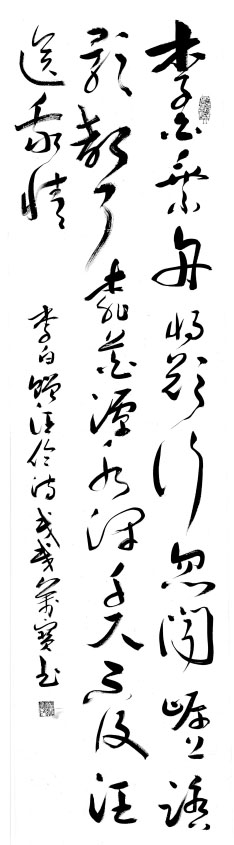 李白乘舟將欲行忽聞岸上踏
歌聲桃花潭水深千尺不及汪
送我情
李白贈汪倫詩戊戌萬寶書